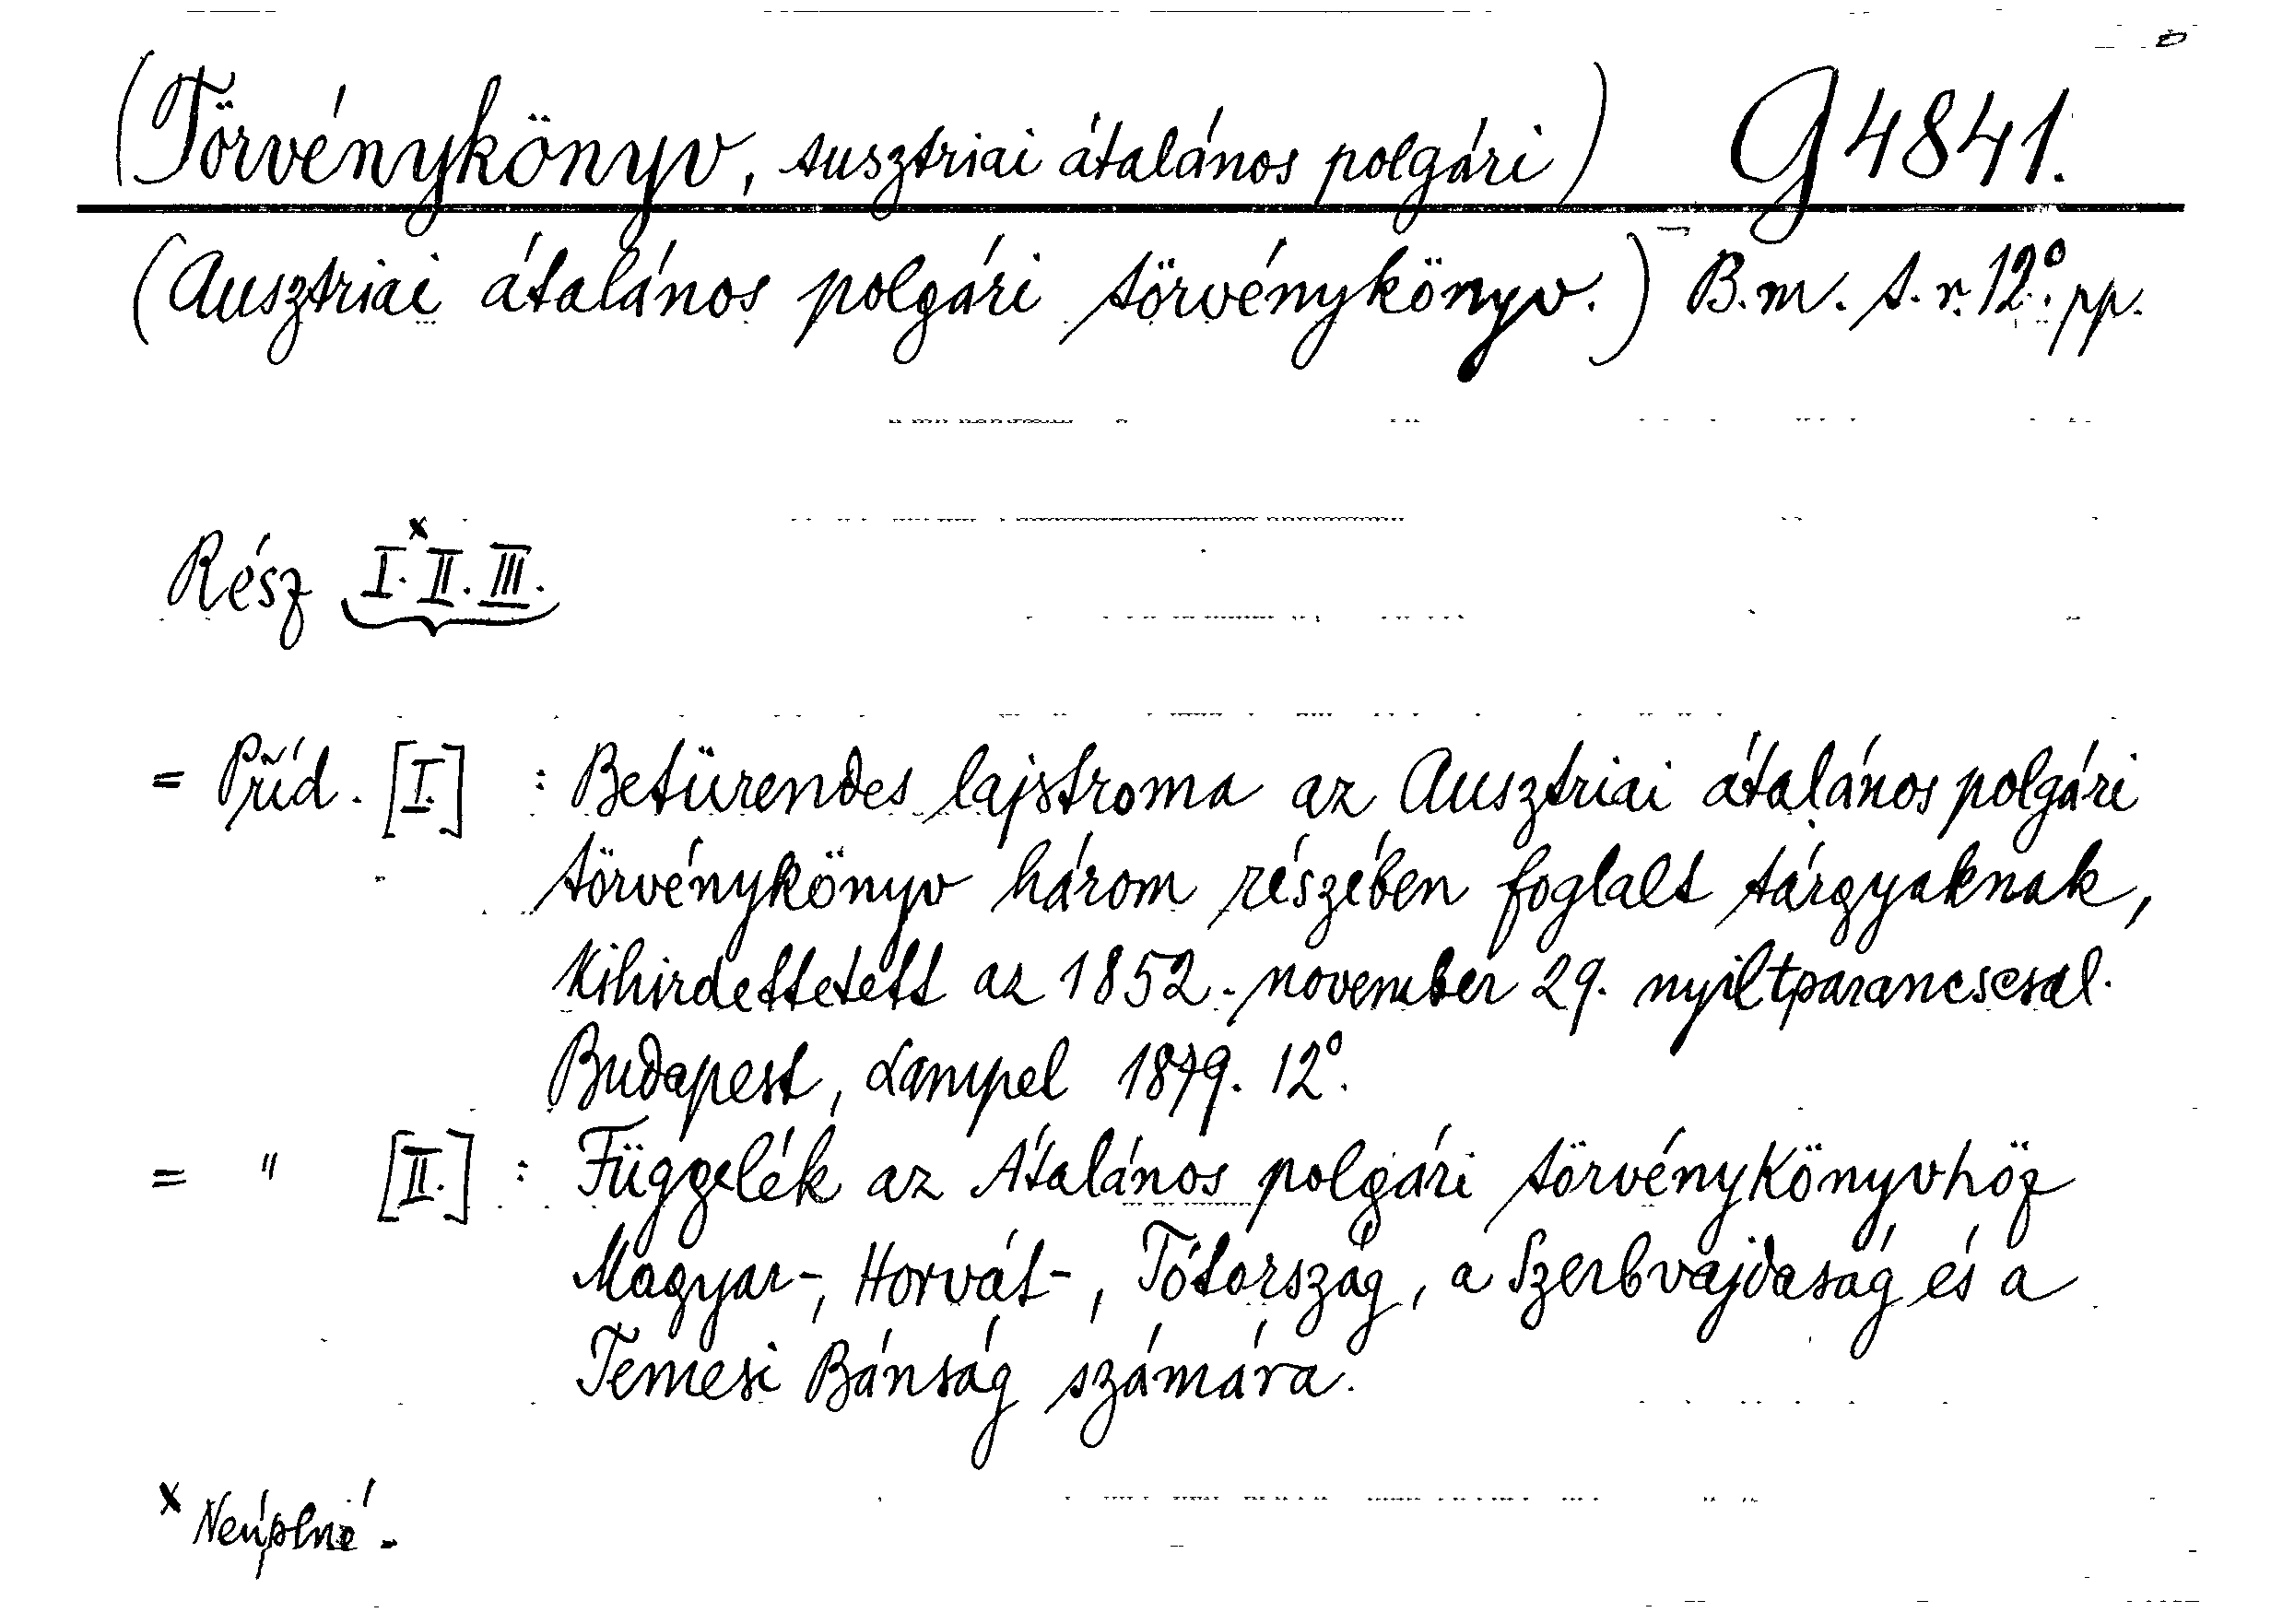 (Törvénykönyv, ausztriai átalános polgári) G 4841.
(Ausztriai átalános polgári törvénykönyv.) B. m. s. r. 12°. pp.
Rész I.ˣ II. III.
= Příd. [I.] : Betürendes lajstroma az Ausztriai átalános polgári
törvénykönyv három részében foglalt tárgyaknak,
kihirdettetett az 1852. november 29. nyiltparancscsal.
Budapest, Lampel 1879. 12°.
= " [II.] : Függelék az Átalános polgári törvénykönyvhöz
Magyar-, Horvát-, Tótország, a Szerbvajdaság és a
Temesi Bánság számára.
x Neúplné.